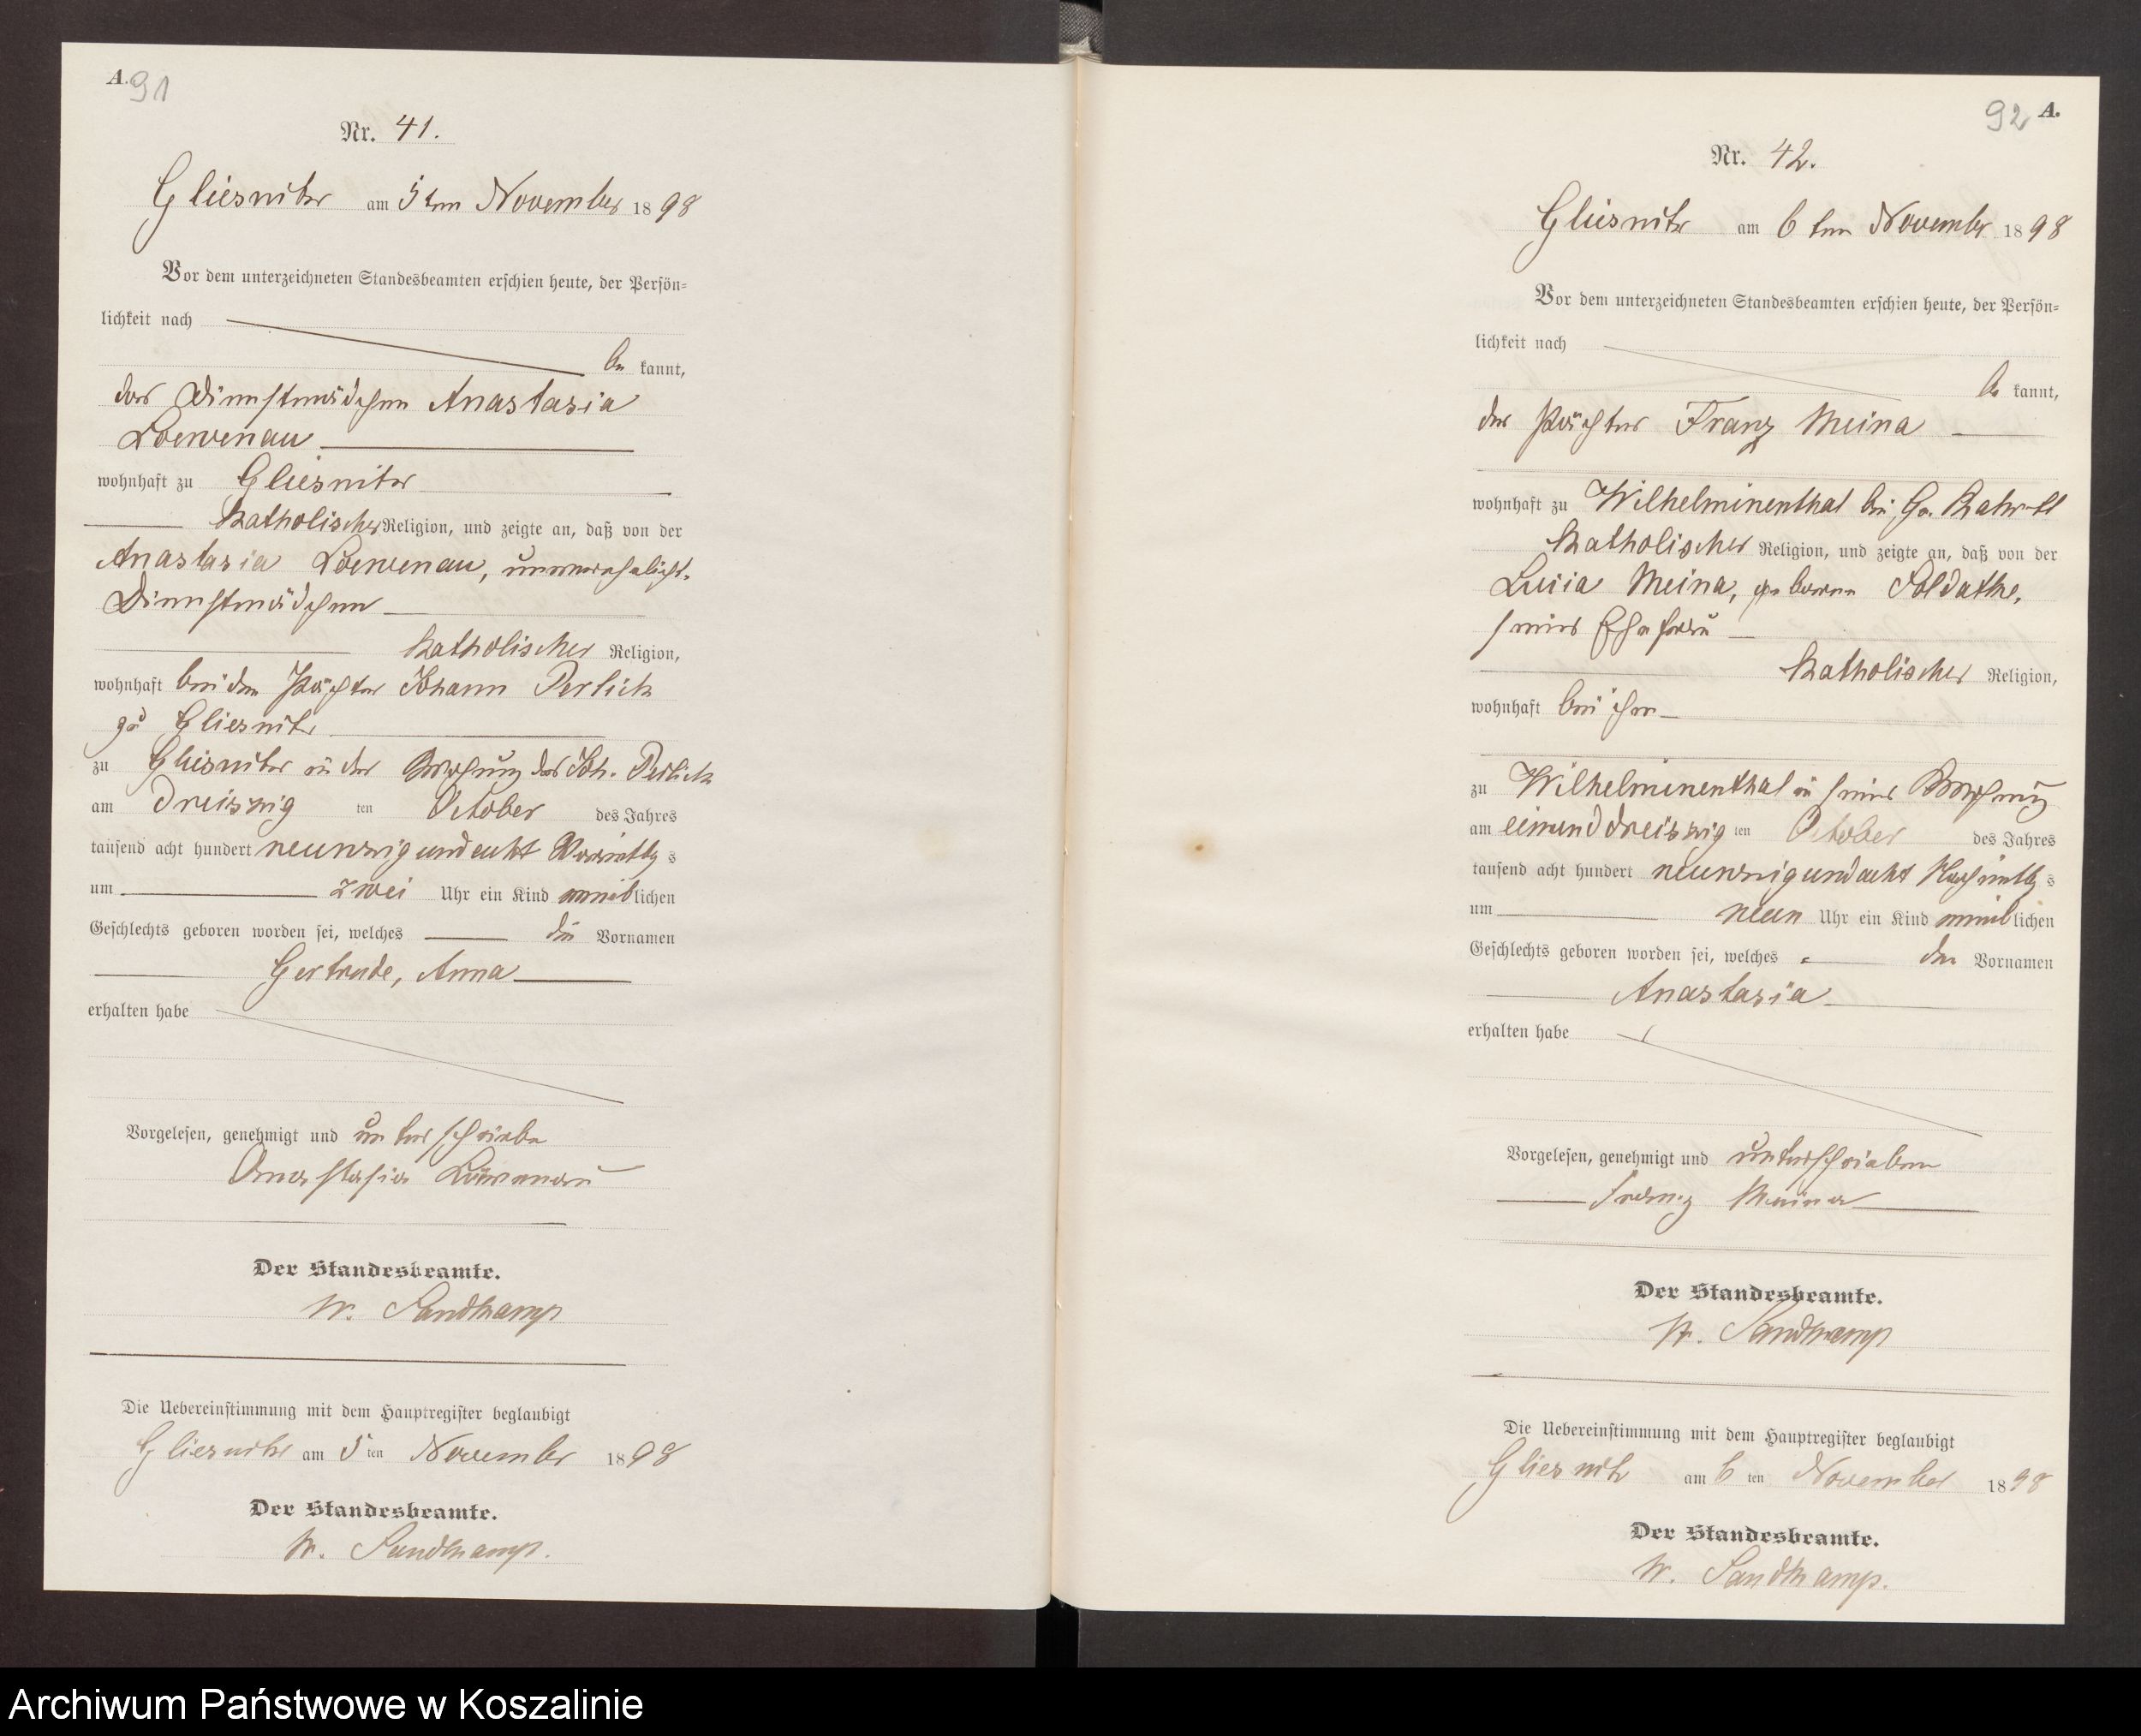 A. 91
Nr. 41.
Gliesnitz am 5 ten November 1898
Vor dem unterzeichneten Standesbeamten erschien heute, der Persön-
lichkeit nach
be kannt,
das Dienstmädchen Anastasia
Loewenau
wohnhaft zu Gliesnitz
katholischer Religion, und zeigte an, daß von der
Anastasia Loewenau, unverehelicht.
Dienstmädchen
katholischer Religion,
wohnhaft bei dem Pächter Johann Perlick
zu Gliesnitz
zu Gliesnitz in der Wohnung des Joh. Perlick
am dreiszig ten October des Jahres
tausend acht hundert neunzig und acht Vormittags
um zwei Uhr ein Kind weiblichen
Geschlechts geboren worden sei, welches die Vornamen
Gertrude, Anna
erhalten habe
Vorgelesen, genehmigt und unterschrieben
Anastasia Löwenau
Der Standesbeamte.
W. Sandkamp
Die Uebereinstimmung mit dem Hauptregister beglaubigt
Gliesnitz am 5 ten November 1898
Der Standesbeamte.
W. Sandkamp.
92 A.
Nr. 42.
Gliesnitz am 6 ten November 1898
Vor dem unterzeichneten Standesbeamten erschien heute, der Persön-
lichkeit nach
be kannt,
der Pächter Franz Meina
wohnhaft zu Wilhelminenthal bei Gr.
katholischer Religion, und zeigte an, daß von der
Lucia Meina, geborene Soldathe,
seiner Ehefrau
katholischer Religion,
wohnhaft bei ihm
zu Wilhelminenthal in seiner Wohnung
am einunddreiszig ten October des Jahres
tausend acht hundert neunzig und acht Nachmittags
um neun Uhr ein Kind weiblichen
Geschlechts geboren worden sei, welches den Vornamen
Anastasia
erhalten habe
Vorgelesen, genehmigt und unterschrieben
Franz Meina
Der Standesbeamte.
W. Sandkamp
Die Uebereinstimmung mit dem Hauptregister beglaubigt
Gliesnitz am 6 ten November 1898
Der Standesbeamte.
W. Sandkamp.
Archiwum Państwowe w Koszalinie